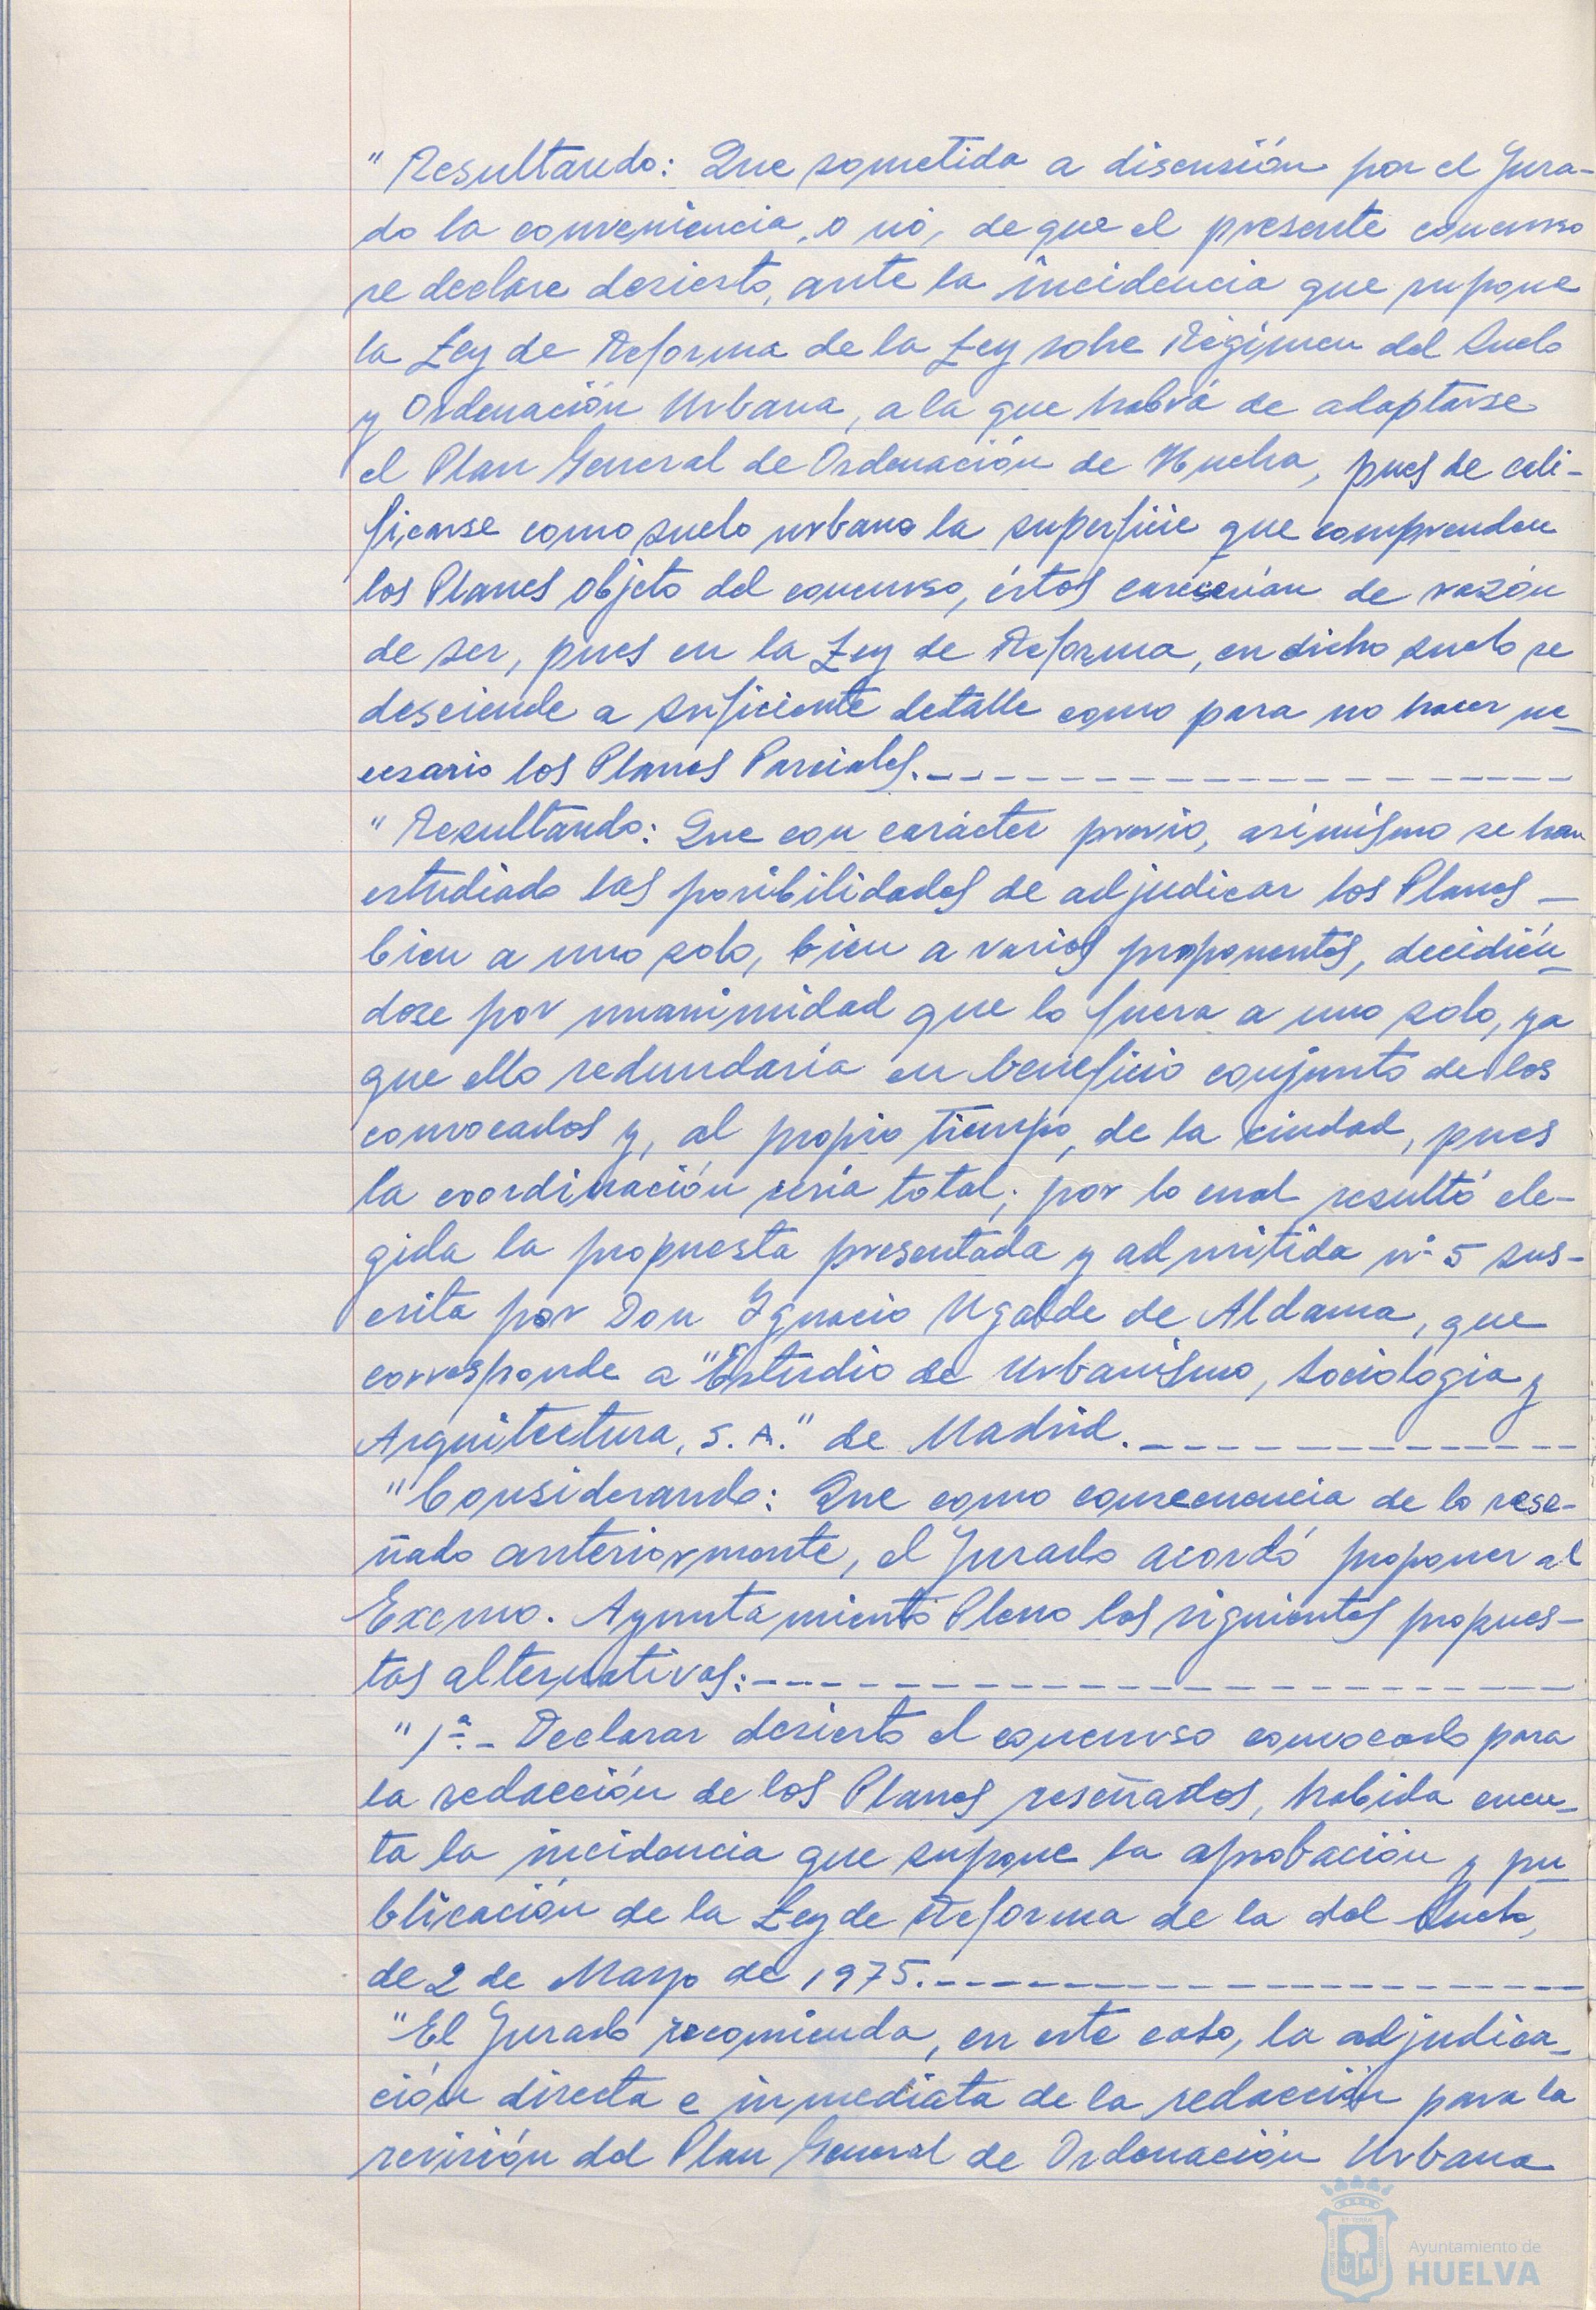 "Resultando: Que sometida a discusión por el Jura-
do la conveniencia, o nó, de que el presente concurso
se declare desierto, ante la incidencia que supone
la Ley de Reforma de la Ley sobre Régimen del Suelo
y Ordenación Urbana, a la que habrá de adaptarse
el Plan General de Ordenación de Huelva, pues de cali-
ficarse como suelo urbano la superficie que comprenden
los Planes objeto del concurso, éstos carecerían de razón
de ser, pues en la Ley de Reforma, en dicho suelo se
desciende a suficiente detalle como para no hacer ne-
cesario los Planes Parciales.
"Resultando: Que con carácter previo, asímísmo se han
estudiado las posibilidades de adjudicar los Planes -
bien a uno solo, bien a varios proponentes, decidién-
dose por unanimidad que lo fuera a uno solo, ya
que ello redundaría en beneficio conjunto de los
convocados y, al propio tiempo, de la ciudad, pues
la coordinación sería total; por lo cual resultó ele-
gida la propuesta presentada y admitida nº 5 sus-
crita por Don Ignacio Ugalde de Aldama, que
corresponde a "Estudio de Urbanismo, Sociologia y
Arquitectura, S.A." de Madrid.
"Considerando: Que como consecuencia de lo rese-
ñado anteriormente, el Jurado acordó proponer al
Excmo. Ayuntamiento Pleno las siguientes propues-
tas alternativas:
"1ª.- Declarar desierto el concurso convocado para
la redacción de los Planes reseñados, habida cuen-
ta la incidencia que supone la aprobación y pu-
blicación de la Ley de Reforma de la del Suelo,
de 2 de Mayo de 1975.
"El Jurado recomienda, en este caso, la adjudica-
ción directa e inmediata de la redacción para la
revisión del Plan General de Ordenación Urbana
Ayuntamiento de
HUELVA